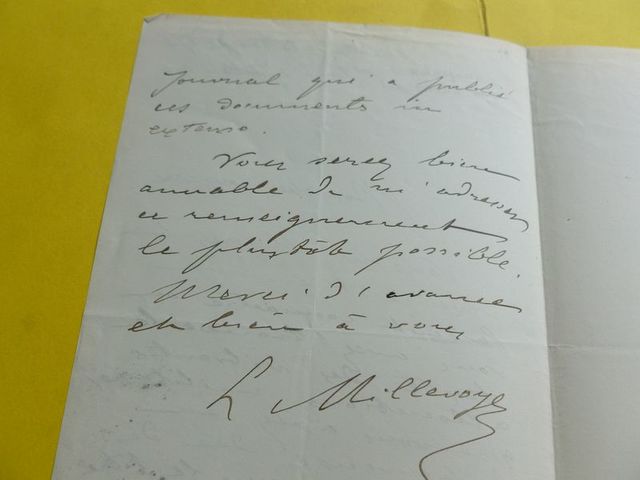 journal qui a publié
ces documents in
extenso.
Vous serez bien
aimable de m'adresser
ce renseignement
le plustôt possible.
Merci d'avance
et bien à vous
L Millevoye